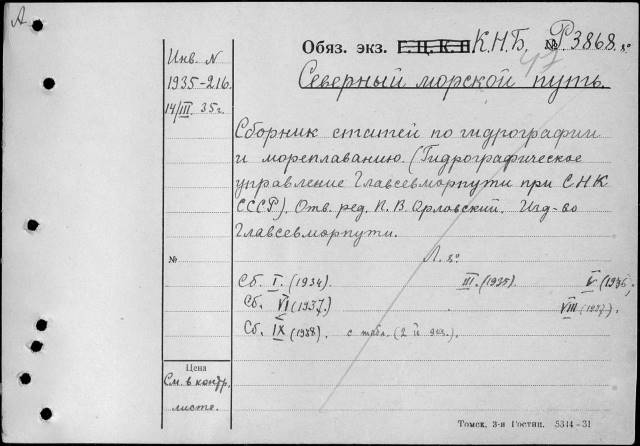 А
Инв. N
1935-216.
14/III. 35г.
Обяз. экз. Г.Ц.К.П К.Н.Б. № Р3868. 8°
Северный морской путь.
Сборник статей по гидрографии
и мореплаванию. (Гидрографическое
управление Главсевморпути при СНК
СССР). Отв. ред. П. В. Орловский. Изд-во
Главсевморпути.
№
Л. 8°
Сб. I. (1934). III. (1935). V (1936);
Сб. VI (1937.) VIII (1937).
Сб. IX (1938). с табл. (2 й экз.).
Цена
См. в контр.
листе.
Томск, 3-я Гостип. 5344-31